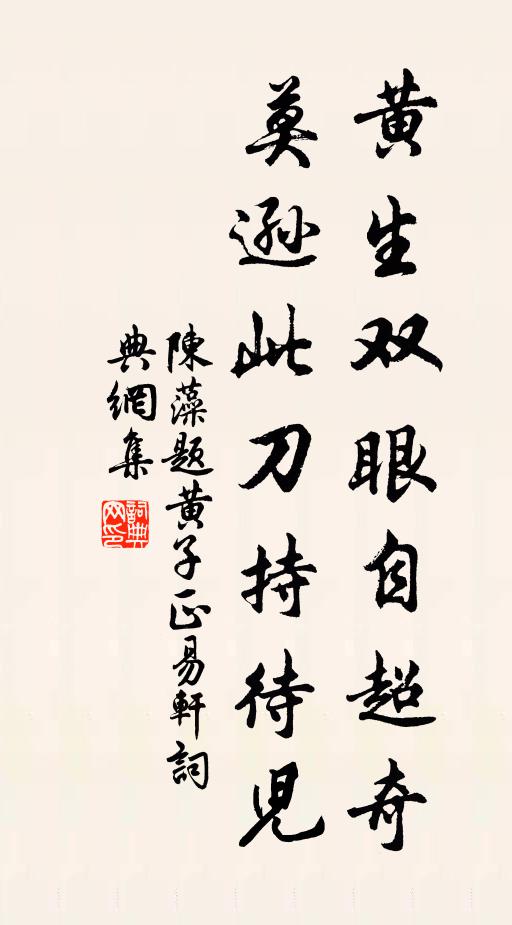 黄生双眼自超奇
莫逊此刀持待児
陳藻题黄子正易軒詞
典網集
詞典网印